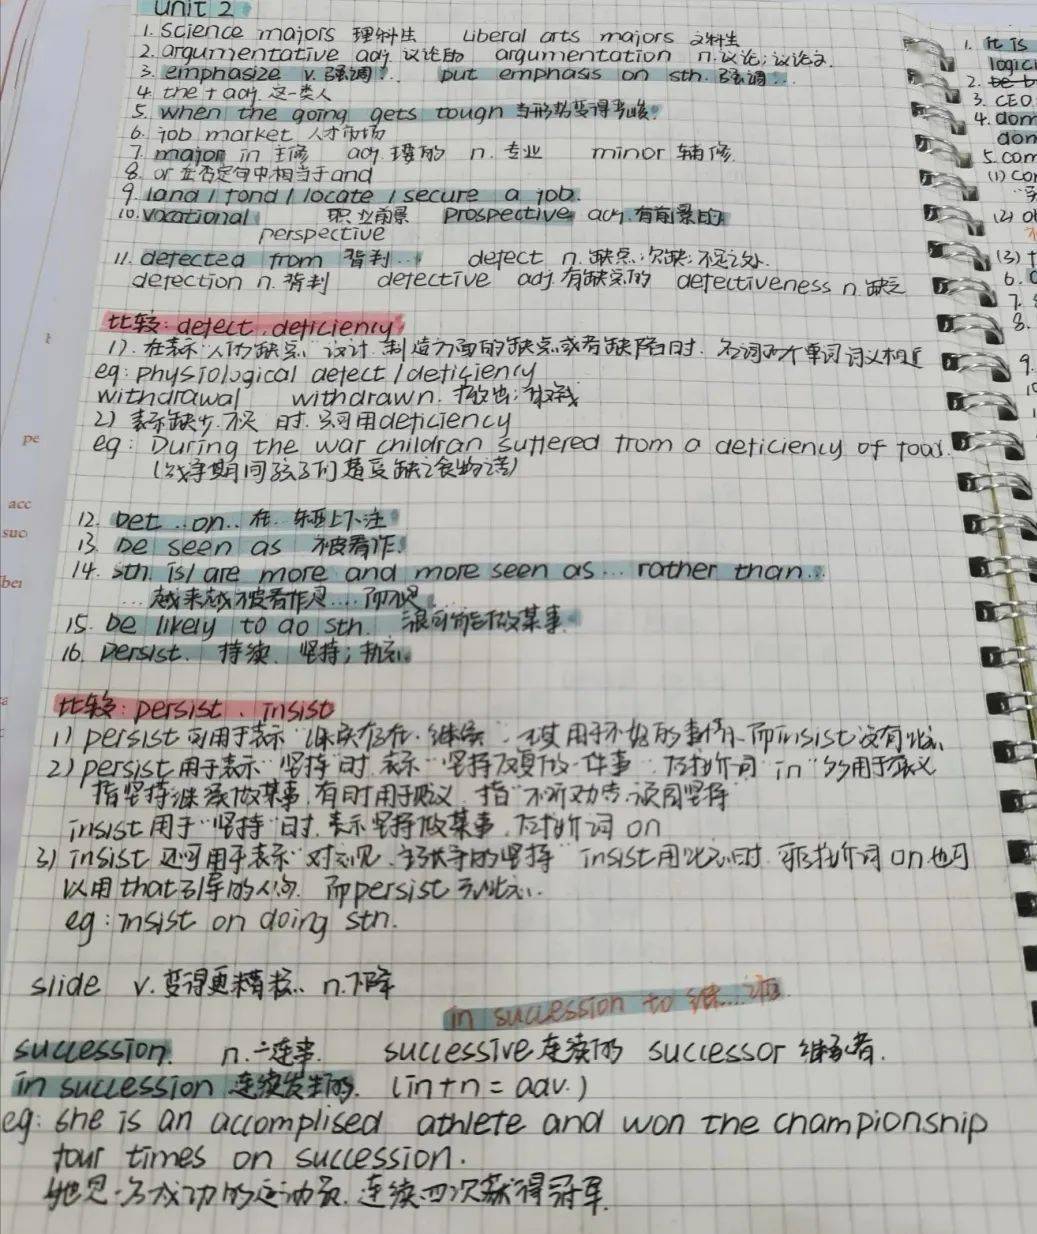 unit 2
1. science majors 理科生 Liberal arts majors 文科生
2. argumentative adj 议论的 argumentation n.议论;议论文.
3. emphasize v. 强调 put emphasis on sth. 强调
4. the + adj 这一类人
5. when the going gets tough 当形势变得考峻.
6. job market 人才市场
7. major in 主修 adj. 主要的 n. 专业 minor 辅修.
8. or 在否定句中相当于and
9. land / fond / locate / secure a job.
10. vocational 职业前景 prospective adj. 有前景的
perspective
11. defected from 背判... defect n. 缺点;欠缺;不足之处.
defection n. 背判 defective adj 有缺点的 defectiveness n. 缺乏
比较: defect. deficiency
1). 在表示"人的缺点" 设计 制造方面的缺点或者缺陷时. 两个单词词义相近
eg: physiological defect / deficiency
withdrawal withdrawn. 撤出;
2) 表示缺少. 不足 时. 只可用deficiency
eg: During the war childran suffered from a deficiency of food.
(战争期间孩子们遭受缺乏食物之苦)
12. bet ..on.. 在...东西上下注
13. be seen as 被看作.
14. sth. is/ are more and more seen as... rather than...
...越来越被看作是....而不是
15. be likely to do sth. 很可能做某事.
16. persist. 持续. 坚持;
比较: persist. insist
1) persist 可用于表示"继续存在. 继续" 尤其用于不好的事情. 而insist没有此意
2) persist 用于表示"坚持"时. 表示"坚持反复做一件事" 后接介词"in" 多用于褒义
指坚持继续做某事. 有时用于贬义. 指"不听劝告. 顽固坚持"
insist 用于"坚持"时. 表示坚持做某事. 后接介词 on
3) insist 还可用于表示"对意见. 主张等的坚持" insist用此意时. 除接介词on. 也可
以用that引导的从句. 而persist无此意.
eg: insist on doing sth.
slide v. 变得更糟糕.. n.下降
in succession to 继....之后
succession. n. 一连串. successive 连续的 successor 继承者.
in succession 连续发生的. (in+n = adv.)
eg: she is an accomplised athlete and won the championship
four times on succession.
她是一名成功的运动员. 连续四次获得冠军.
1. it is
logic
2. be b
3. CEO
4. dom
don
5. com
(1) co
(2) o
(3) t
6.
7.
8.
9.
pe
acc
suc
ber